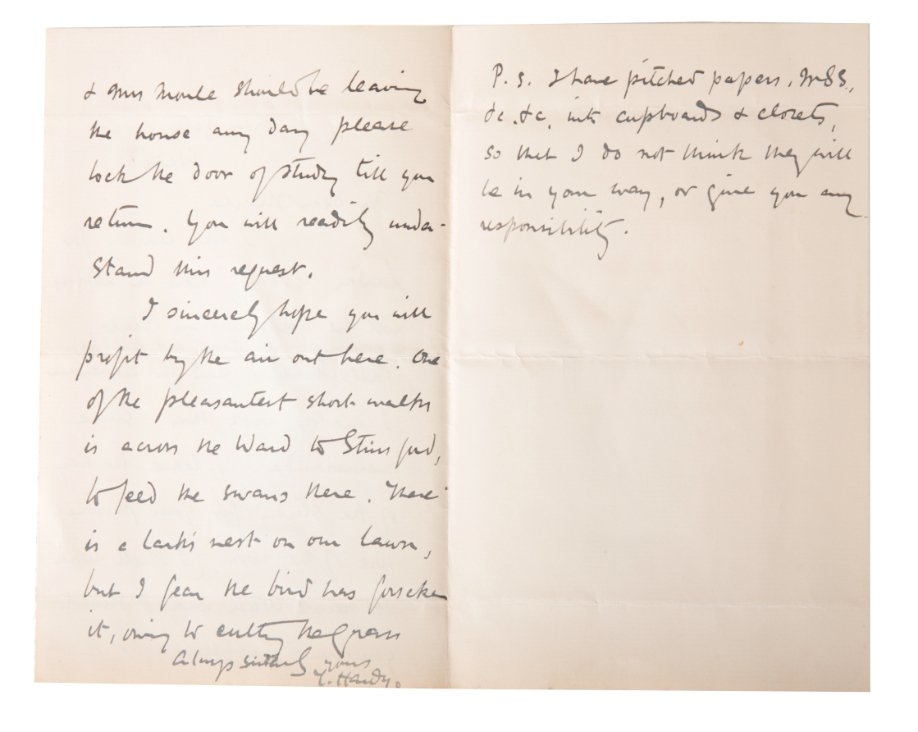 & Mrs Moule should be leaving
the house any day please
lock the door of study till you
return. You will readily under-
stand this request.
I sincerely hope you will
profit by the air out here. One
of the pleasantest short walks
is across the to Stinsford,
to feed the swans there. There
is a lark's nest on our lawn,
but I fear the bird has forsaken
it, owing to cutting the grass
Always sincerely yours
T. Hardy.
P.S. I have pitched papers, MSS.,
&c. &c. into cupboards & closets,
so that I do not think they will
be in your way, or give you any
responsibility.